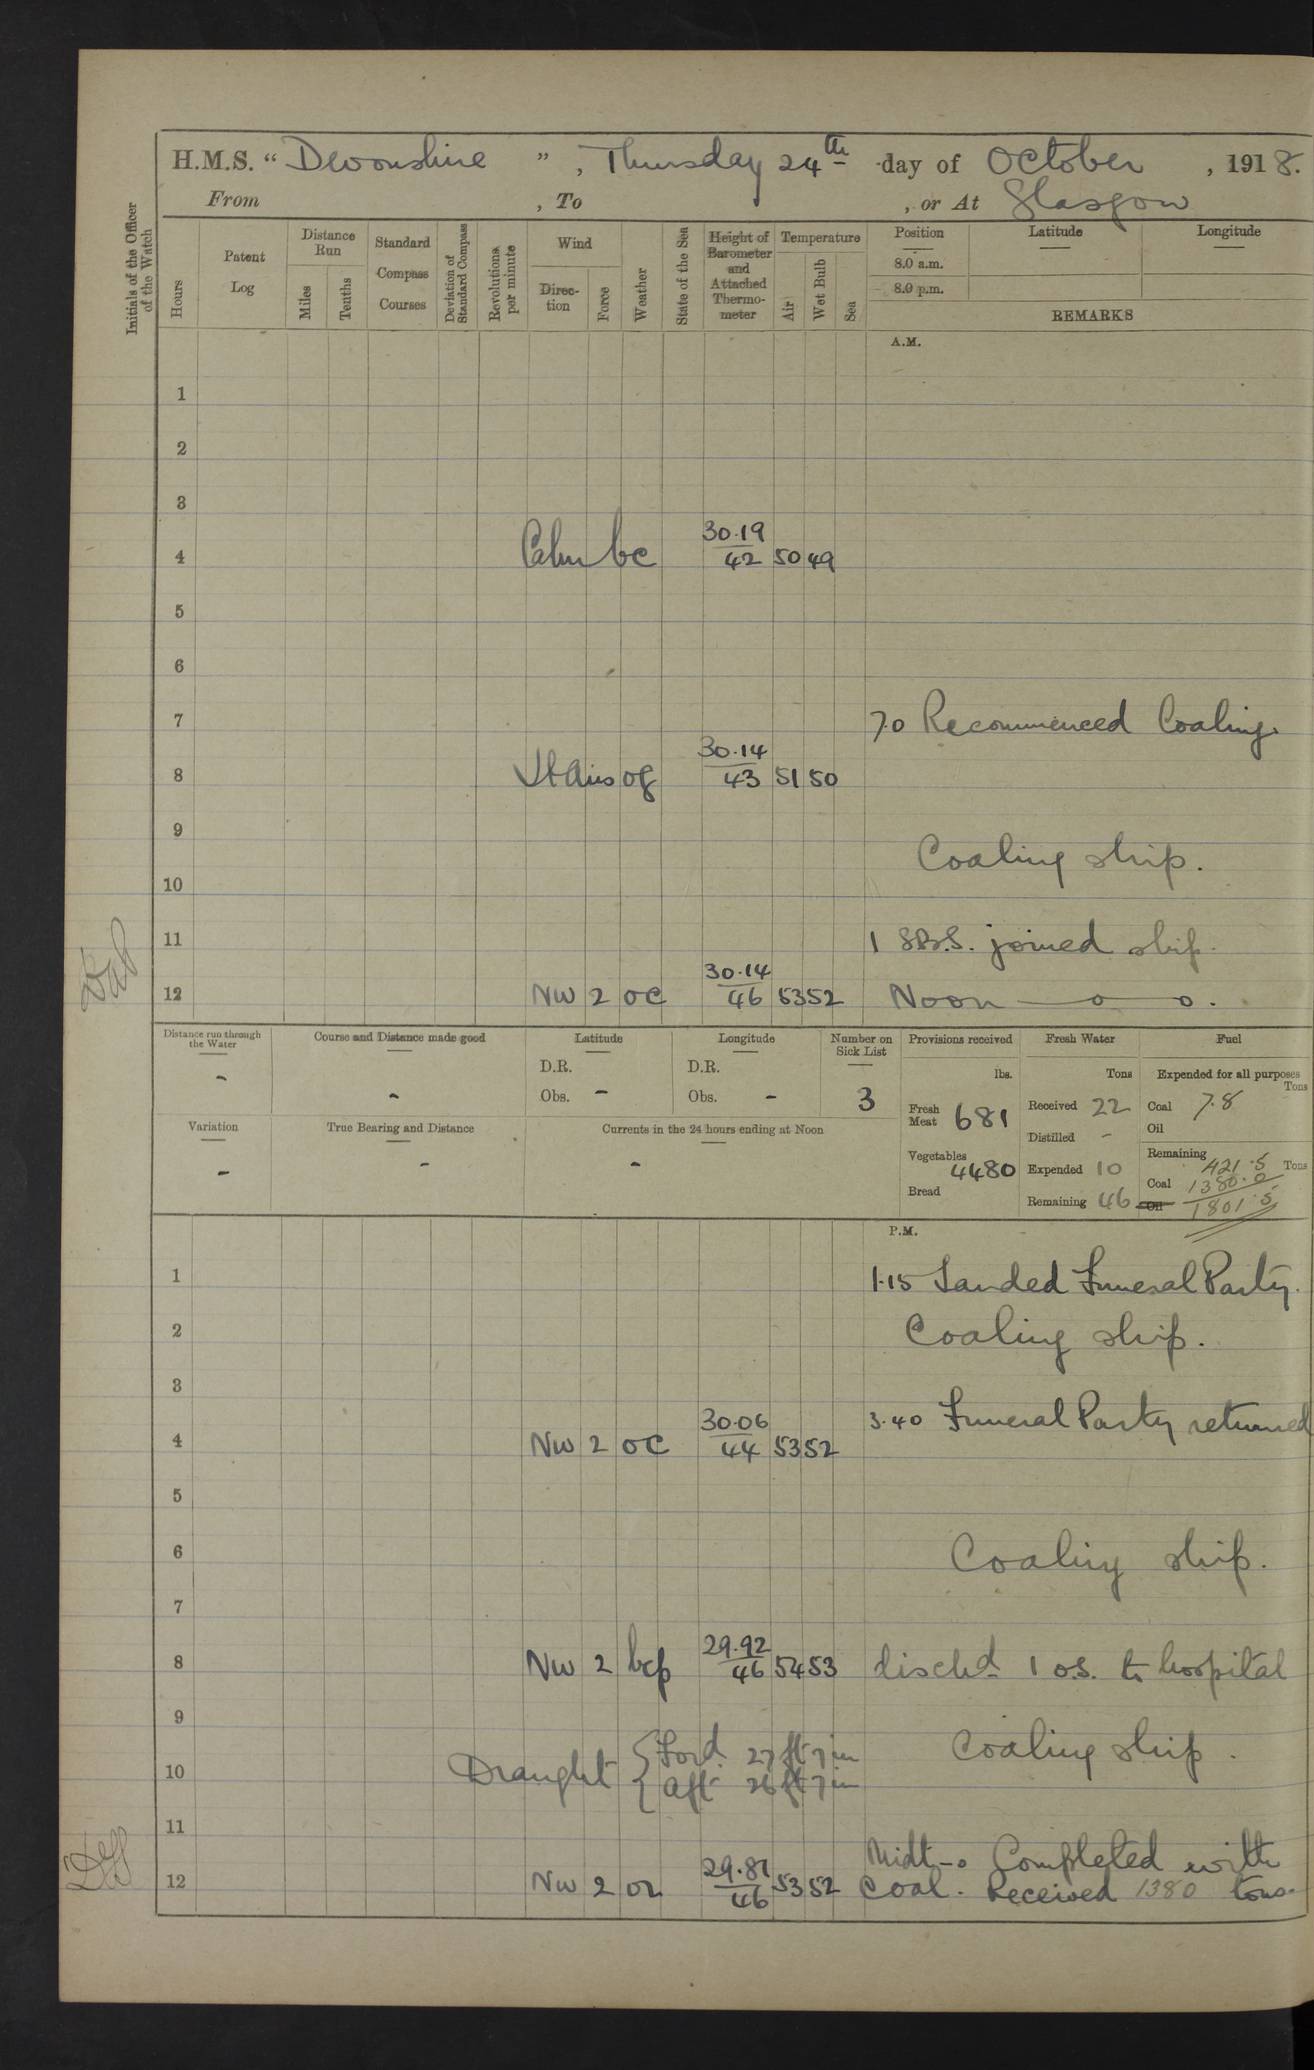 H.M.S. “ Devonshire ” , Thursday 24th day of October , 1918.
From , To , or At Glasgow
Initials of the Officer of the Watch
Hours
Patent Log
Distance Run
Miles
Tenths
Standard Compass Courses
Deviation of Standard Compass
Revolutions per minute
Wind
Direc- tion
Force
Weather
State of the Sea
Height of Barometer and Attached Thermo- meter
Temperature
Air
Wet Bulb
Sea
Position
8.0 a.m.
8.0 p.m.
Latitude
Longitude
REMARKS
A.M.
1
2
3
4 Calm bc 30.19 42 50 49
5
6
7 7.0 Recommenced Coaling.
8 Lt Airs og 30.14 43 51 50
9 Coaling ship.
10
11 1 SBS. joined ship.
12 NW 2 oc 30.14 46 53 52 Noon — o — o.
Distance run through the Water -
Course and Distance made good -
Latitude
D.R.
Obs. -
Longitude
D.R.
Obs. -
Number on Sick List
3
Variation -
True Bearing and Distance -
Currents in the 24 hours ending at Noon -
Provisions received
lbs.
Fresh Meat 681
Vegetables 4480
Bread
Fresh Water
Tons
Received 22
Distilled -
Expended 10
Remaining 46
Fuel
Expended for all purposes
Tons
Coal 7.8
Oil
Remaining
Tons
421.5
Coal 1380.0
Oil 1801.5
P.M.
1 1.15 Landed Funeral Party.
2 Coaling ship.
3
3.40 Funeral Party returned
4 NW 2 oc 30.06 44 53 52
5
6 Coaling ship.
7
8 NW 2 bcp 29.92 46 54 53 disch'd 1 o.s. to hospital
9
Coaling ship.
10 Draught { Ford 27 ft 7 in
Aft 26 ft 7 in
11
Midt-o Completed with
12 NW 2 or 29.81 46 53 52 coal. Received 1380 tons.